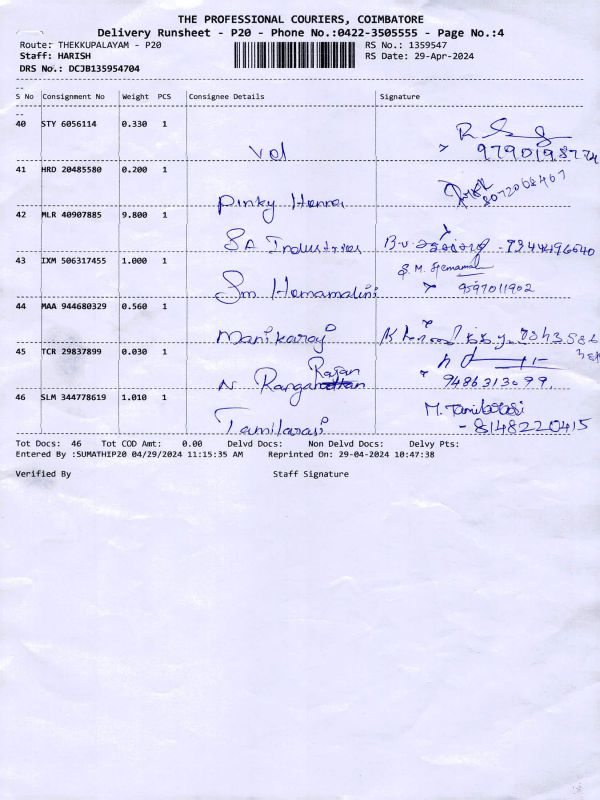 THE PROFESSIONAL COURIERS, COIMBATORE
Delivery Runsheet - P20 - Phone No.:0422-3505555 - Page No.:4
Route: THEKKUPALAYAM - P20 RS No.: 1359547
Staff: HARISH RS Date: 29-Apr-2024
DRS No.: DCJB135954704
S No Consignment No Weight PCS Consignee Details Signature
40 STY 6056114 0.330 1
Vel 9790198774
41 HRD 20485580 0.200 1
Pinky Henna 8072068467
42 MLR 40907885 9.800 1
SA Industries B.V.
43 IXM 506317455 1.000 1
S. M. Hemamal
Sm Hemamalini 9597011902
44 MAA 944680329 0.560 1
Manikaraj
45 TCR 29837899 0.030 1
Rajan
N Rangan 9486313099
46 SLM 344778619 1.010 1
M. Tamilarasi
Tamilarasi - 8148220415
Tot Docs: 46 Tot COD Amt: 0.00 Delvd Docs: Non Delvd Docs: Delvy Pts:
Entered By :SUMATHIP20 04/29/2024 11:15:35 AM Reprinted On: 29-04-2024 10:47:38
Verified By Staff Signature